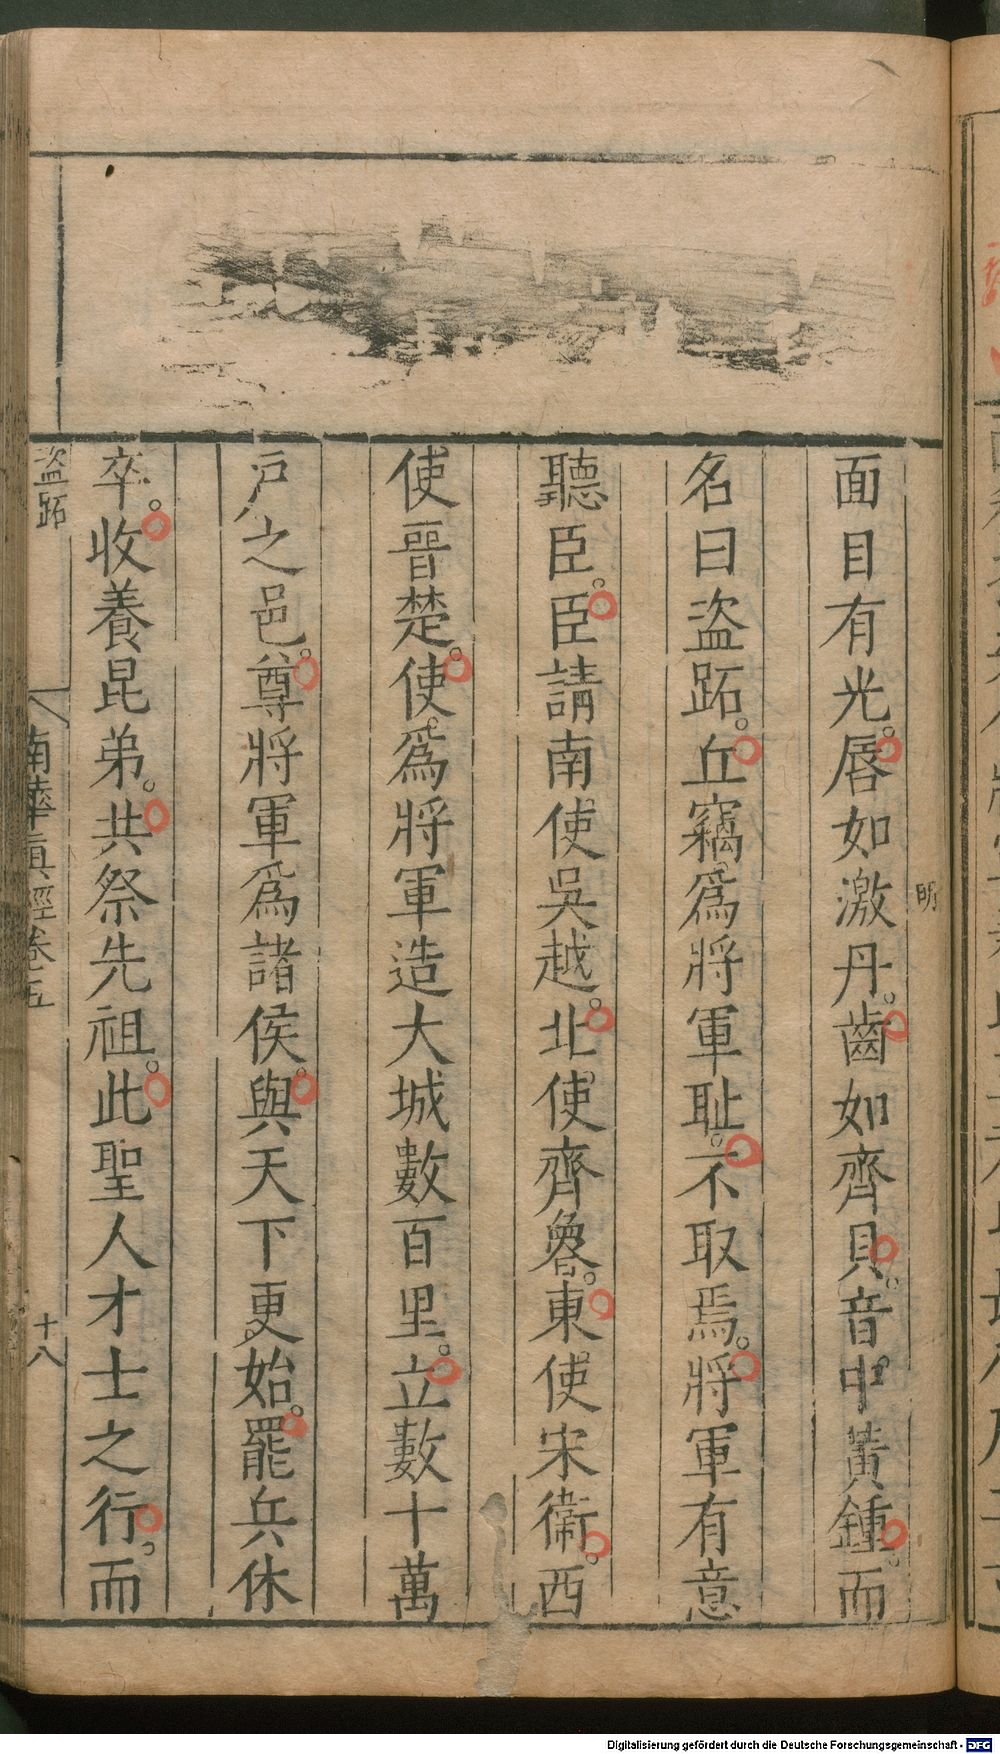 面目有光。唇如激丹。齒如齊貝。音中黃鍾。而
明
名曰盜跖。丘竊爲將軍恥。不取焉。將軍有意
聽臣。臣請南使吳越。北使齊魯。東使宋衛。西
使晉楚。使爲將軍造大城數百里。立數十萬
戸之邑。尊將軍爲諸侯。與天下更始。罷兵休
卒。收養昆弟。共祭先祖。此聖人才士之行。而
盜跖 南華真經卷五 十八
Digitalisierung gefördert durch die Deutsche Forschungsgemeinschaft - DFG